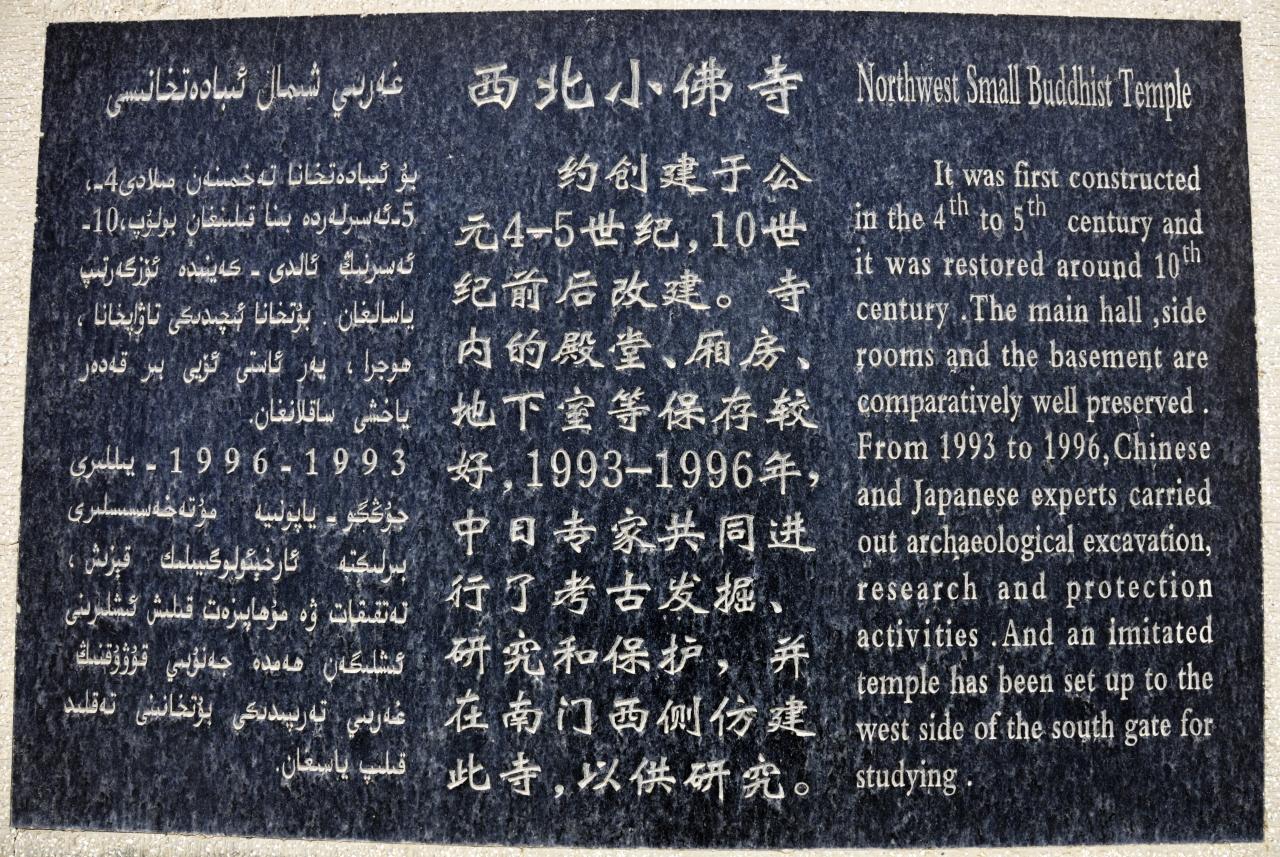 غەربىي شىمال ئىبادەتخانىسى
بۇ ئىبادەتخانا تەخمىنەن مىلادى4ـ،
5ـئەسىرلەردە بىنا قىلىنغان بولۇپ،10ـ
ئەسىرنىڭ ئالدى ـ كەينىدە ئۆزگەرتىپ
ياسالغان . بۇتخانا ئىچىدىكى تاۋاپخانا ،
ھوجرا ، يەر ئاستى ئۆيى بىر قەدەر
ياخشى ساقلانغان.
1993ـ1996ـ يىللىرى
جۇڭگو ـ ياپونىيە مۇتەخەسسىسلىرى
بىرلىكتە ئارخېئولوگىيىلىك قېزىش ،
تەتقىقات ۋە مۇھاپىزەت قىلىش ئىشلىرىنى
ئىشلىگەن ھەمدە جەنۇبىي قوۋۇقنىڭ
غەربىي تەرىپىدىكى بۇتخانىنى تەقلىد
قىلىپ ياسىغان.
西北小佛寺
约创建于公
元4-5世纪,10世
纪前后改建。寺
内的殿堂、厢房、
地下室等保存较
好,1993-1996年,
中日专家共同进
行了考古发掘、
研究和保护,并
在南门西侧仿建
此寺,以供研究。
Northwest Small Buddhist Temple
It was first constructed
in the 4th to 5th century and
it was restored around 10th
century .The main hall ,side
rooms and the basement are
comparatively well preserved .
From 1993 to 1996,Chinese
and Japanese experts carried
out archaeological excavation,
research and protection
activities .And an imitated
temple has been set up to the
west side of the south gate for
studying .